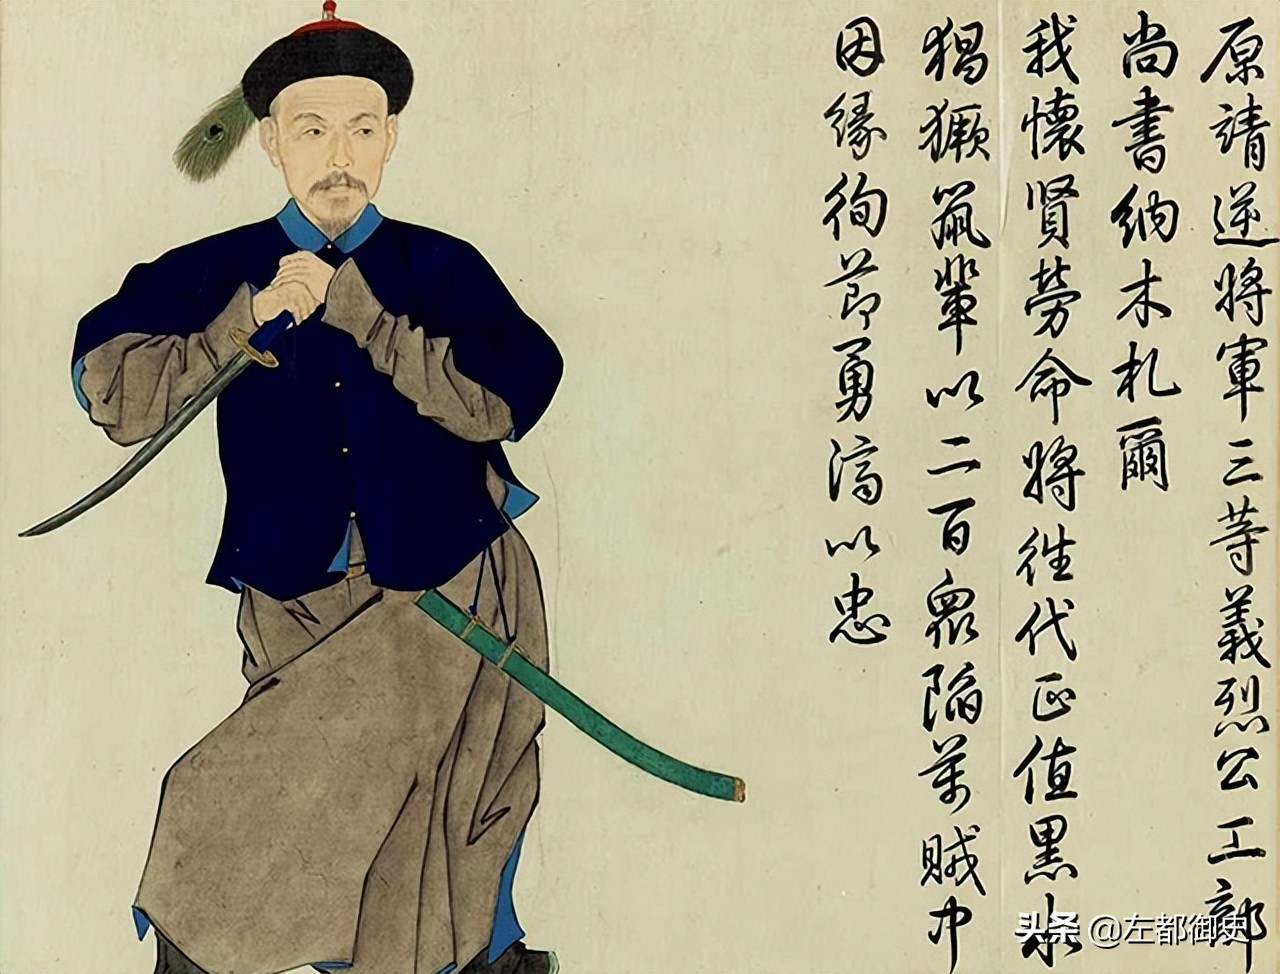 原靖逆將軍三等義烈公工部
尚書納木札爾
我懷賢勞命將徃代正值黑水
猖獗鼠輩以二百眾陷萬賊中
因緣徇節勇濟以忠
头条 @左都御史